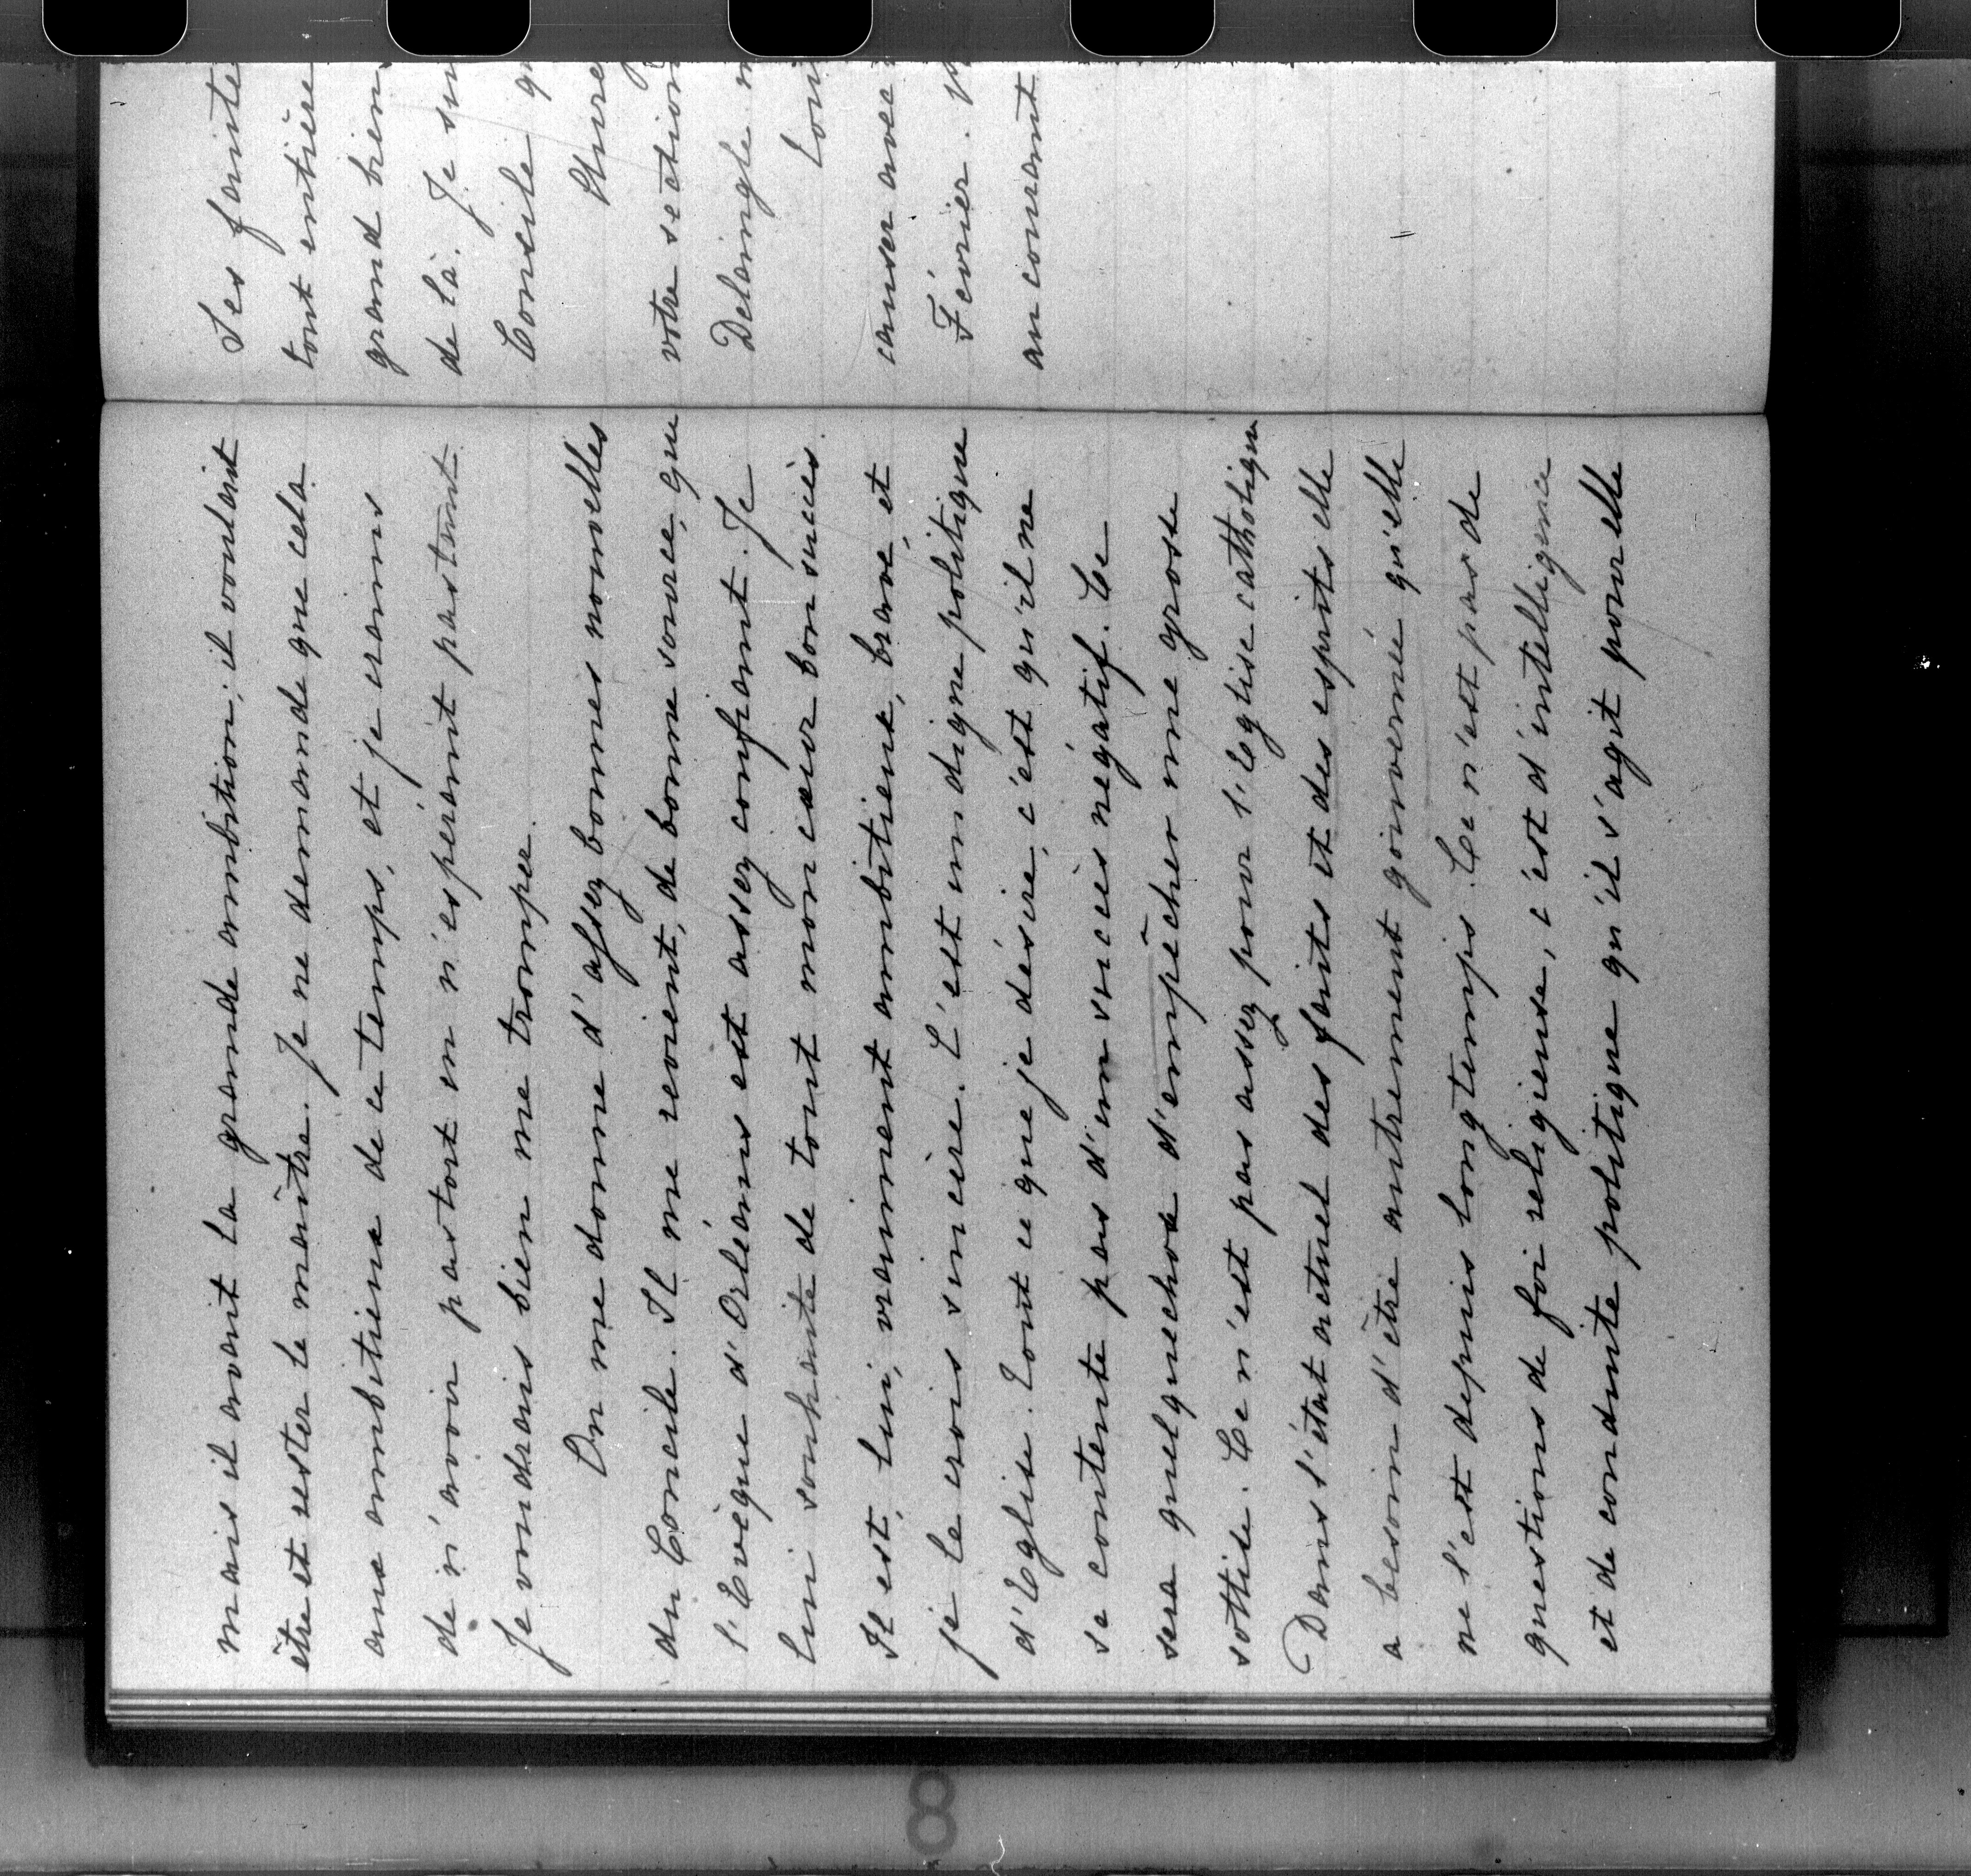 mais il avait la grande ambition; il voulait
être et rester le maître. Je ne demande que cela
aux ambitieux de ce temps, et je crains
de n'avoir pas tort en n'espérant pas tant.
Je voudrais bien me tromper.
On me donne d'assez bonnes nouvelles
du Concile. Il me revient, de bonne source, que
l'Evêque d'Orléans est assez confiant. Je
lui souhaite de tout mon cœur bon succès.
Il est, lui, vraiment ambitieux, brave, et
je le crois sincère. C'est un digne politique
d'Eglise. Tout ce que je désire, c'est qu'il ne
se contente pas d'un succès négatif. Ce
sera quelquechose d'empêcher une grosse
sottise. Ce n'est pas assez pour l'Eglise catholique
Dans l'état actuel des faits et des esprits elle
a besoin d'être autrement gouvernée qu'elle
ne l'est depuis longtemps. Ce n'est pas de
questions de foi religieuse, c'est d'intelligence
et de conduite politique qu'il s'agit pour elle
Ses faute
tout entière
grand bien
de là. Je sui
Concile q
votre section
Delaingle
Tou
causer avec
Février.
au courant
8